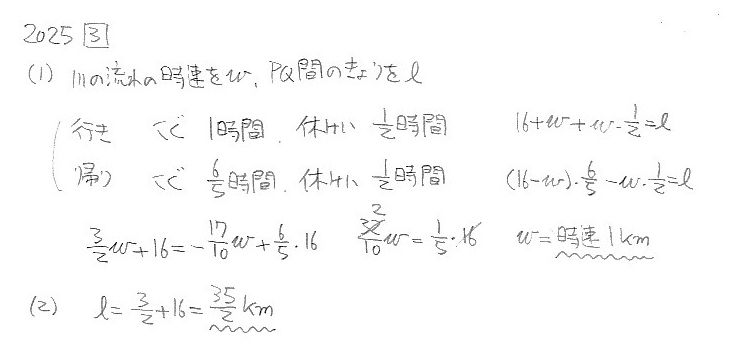 2025 3
(1) 川の流れの時速をw、PQ間のきょりをl
行き こぐ 1時間、休けい 1/2時間 16+w+w・1/2=l
帰り こぐ 6/5時間、休けい 1/2時間 (16-w)・6/5-w・1/2=l
3/2w+16=-17/10w+6/5・16 32/10w=1/5・16 2 w=時速1km
(2) l=3/2+16=35/2km